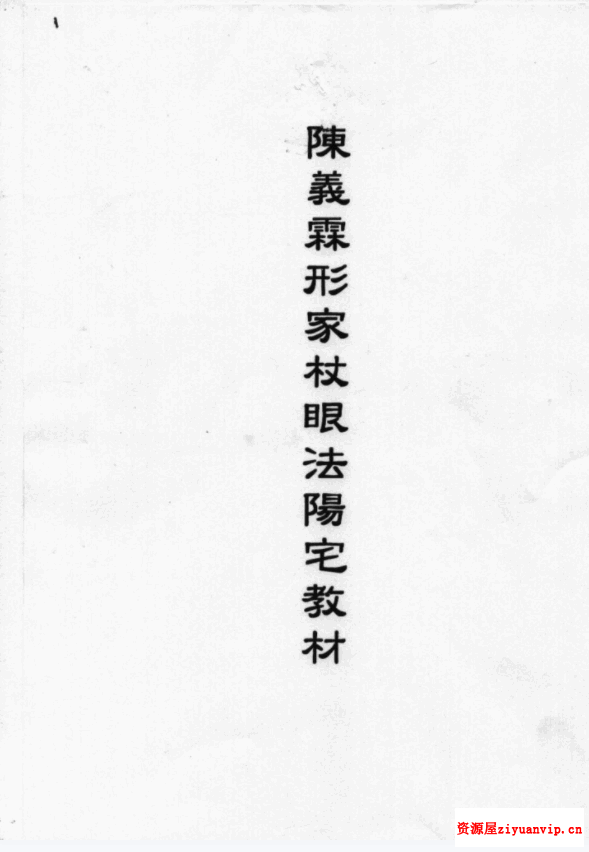 陳義霖形家杖眼法陽宅教材
资源屋ziyuanvip.cn